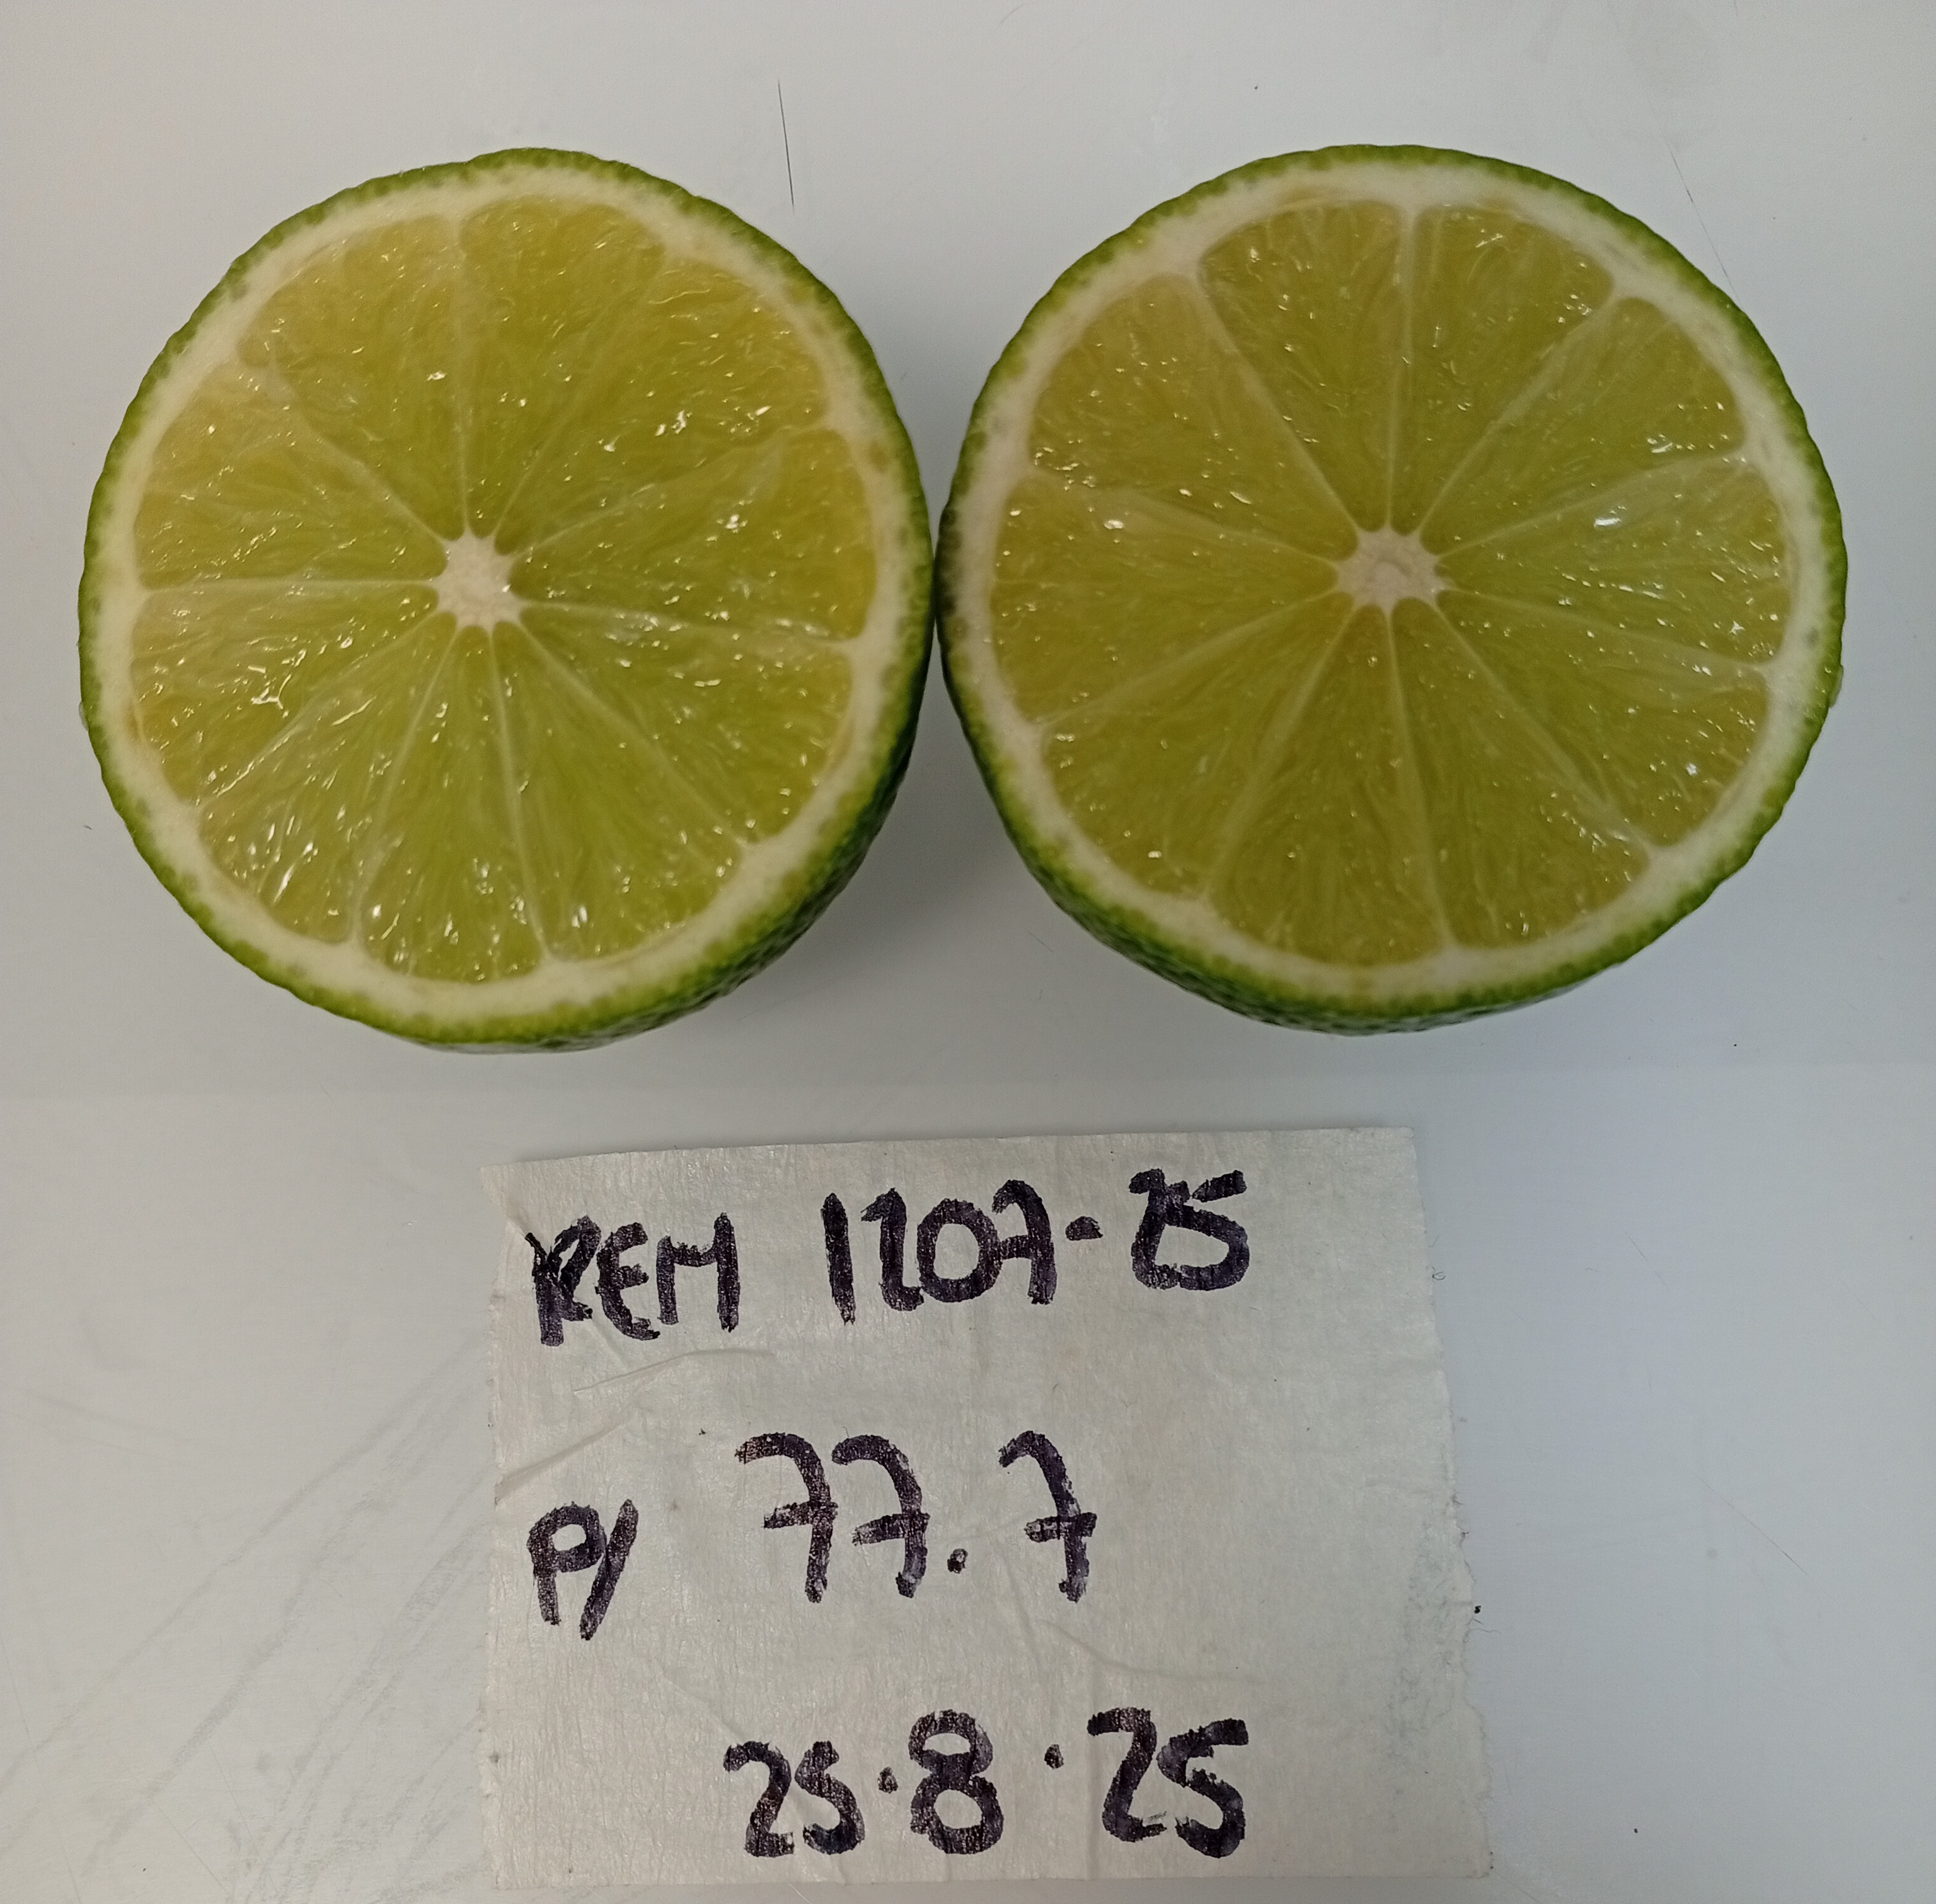 REM 1207-25
P/ 77.7
25.8.25